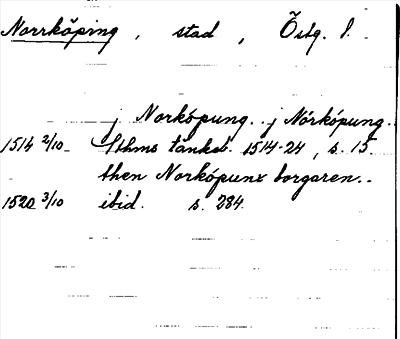 Norrköping, stad, Östg. l.
j Norköpung.. j Nörköpung..
1514 2/10 Sthms tänkeb. 1514-24, s. 15.
then Norköpunx borgaren..
1520 3/10 ibid. s. 284.